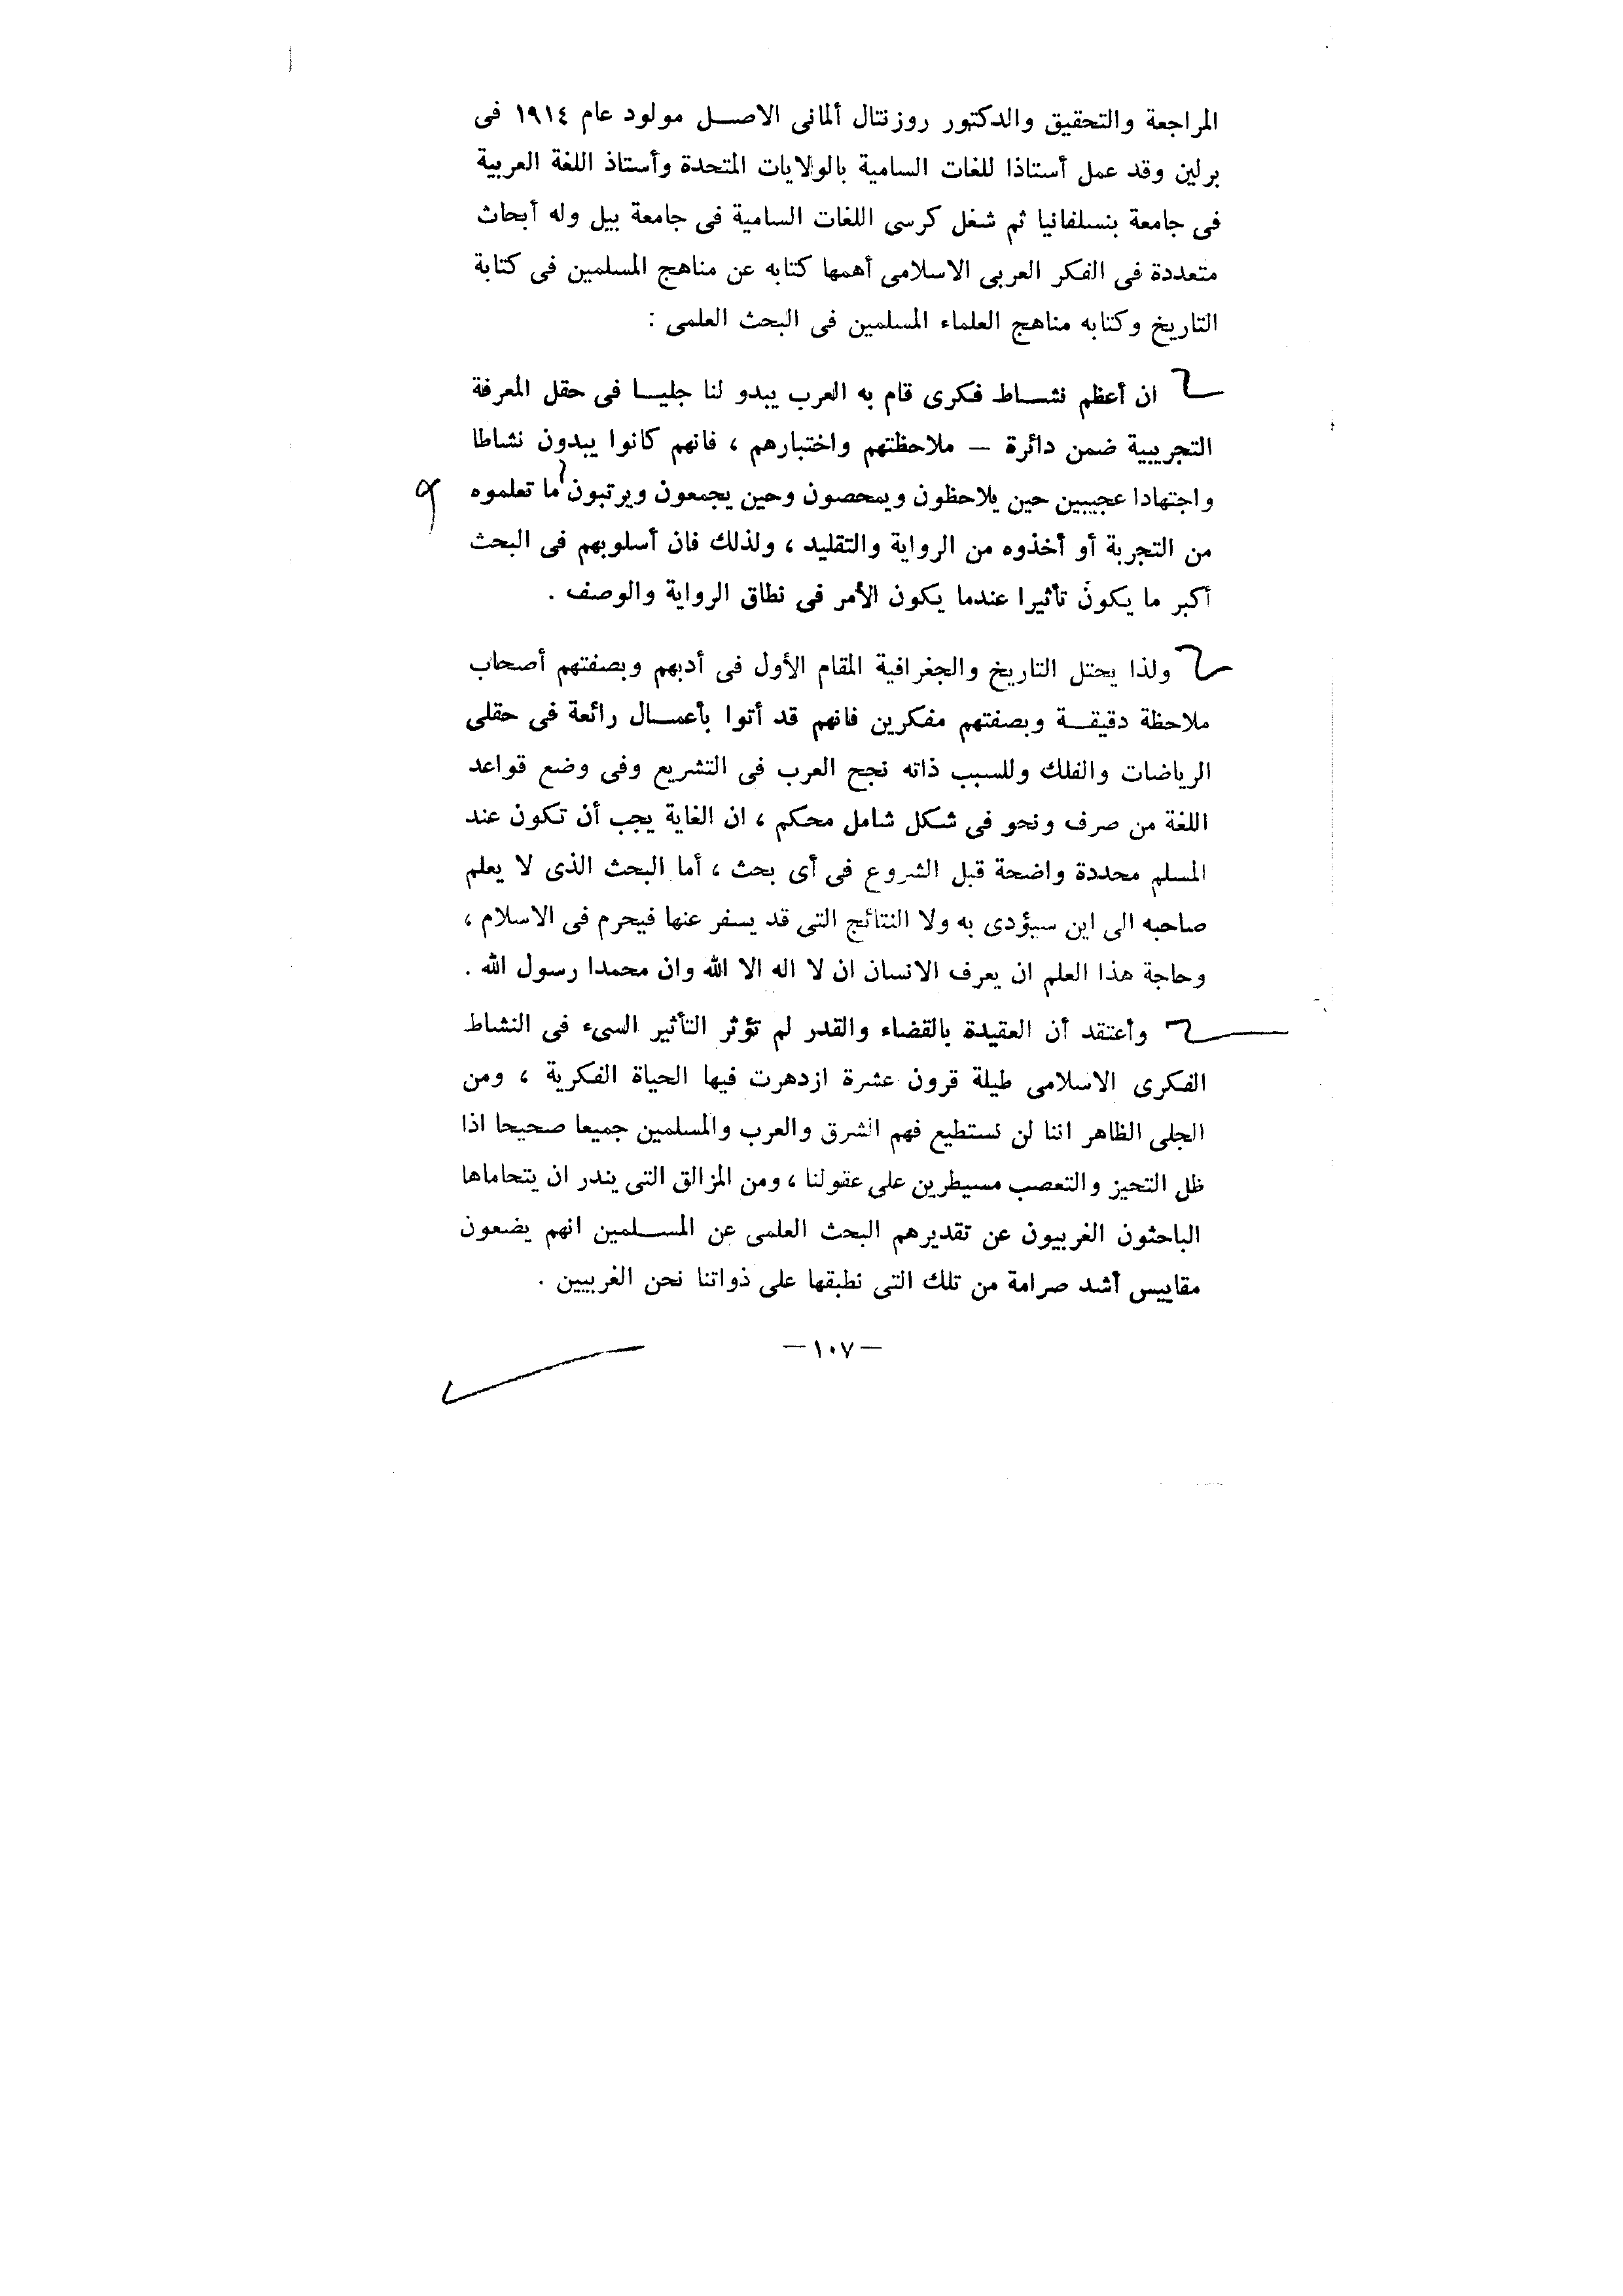 المراجعة والتحقيق والدكتور روزنتال ألمانى الاصــل مولود عام ١٩١٤ فى
برلين وقد عمل أستاذا للغات السامية بالولايات المتحدة وأستاذ اللغة العربية
فى جامعة بنسلفانيا ثم شغل كرسى اللغات السامية فى جامعة بيل وله أبحاث
متعددة فى الفكر العربى الاسلامى أهمها كتابه عن مناهج المسلمين فى كتابة
التاريخ وكتابه مناهج العلماء المسلمين فى البحث العلمى :
ان أعظم نشــاط فكرى قام به العرب يبدو لنا جليــا فى حقل المعرفة
التجريبية ضمن دائرة — ملاحظتهم واختبارهم ، فانهم كانوا يبدون نشاطا
واجتهادا عجيبين حين يلاحظون ويمحصون وحين يجمعون ويرتبون ما تعلموه
من التجربة أو أخذوه من الرواية والتقليد ، ولذلك فان أسلوبهم فى البحث
أكبر ما يكون تأثيرا عندما يكون الأمر فى نطاق الرواية والوصف .
ولذا يحتل التاريخ والجغرافية المقام الأول فى أدبهم وبصفتهم أصحاب
ملاحظة دقيقــة وبصفتهم مفكرين فانهم قد أتوا بأعمــال رائعة فى حقلى
الرياضات والفلك وللسبب ذاته نجح العرب فى التشريع وفى وضع قواعد
اللغة من صرف ونحو فى شكل شامل محكم ، ان الغاية يجب أن تكون عند
المسلم محددة واضحة قبل الشروع فى أى بحث ، أما البحث الذى لا يعلم
صاحبه الى اين سيؤدى به ولا النتائج التى قد يسفر عنها فيحرم فى الاسلام ،
وحاجة هذا العلم ان يعرف الانسان ان لا اله الا الله وان محمدا رسول الله .
وأعتقد أن العقيدة بالقضاء والقدر لم تؤثر التأثير السىء فى النشاط
الفكرى الاسلامى طيلة قرون عشرة ازدهرت فيها الحياة الفكرية ، ومن
الجلى الظاهر اننا لن نستطيع فهم الشرق والعرب والمسلمين جميعا صحيحا اذا
ظل التحيز والتعصب مسيطرين على عقولنا ، ومن المزالق التى يندر ان يتحاماها
الباحثون الغربيون عن تقديرهم البحث العلمى عن المســلمين انهم يضعون
مقاييس أشد صرامة من تلك التى نطبقها على ذواتنا نحن الغربيين .
— ١٠٧ —